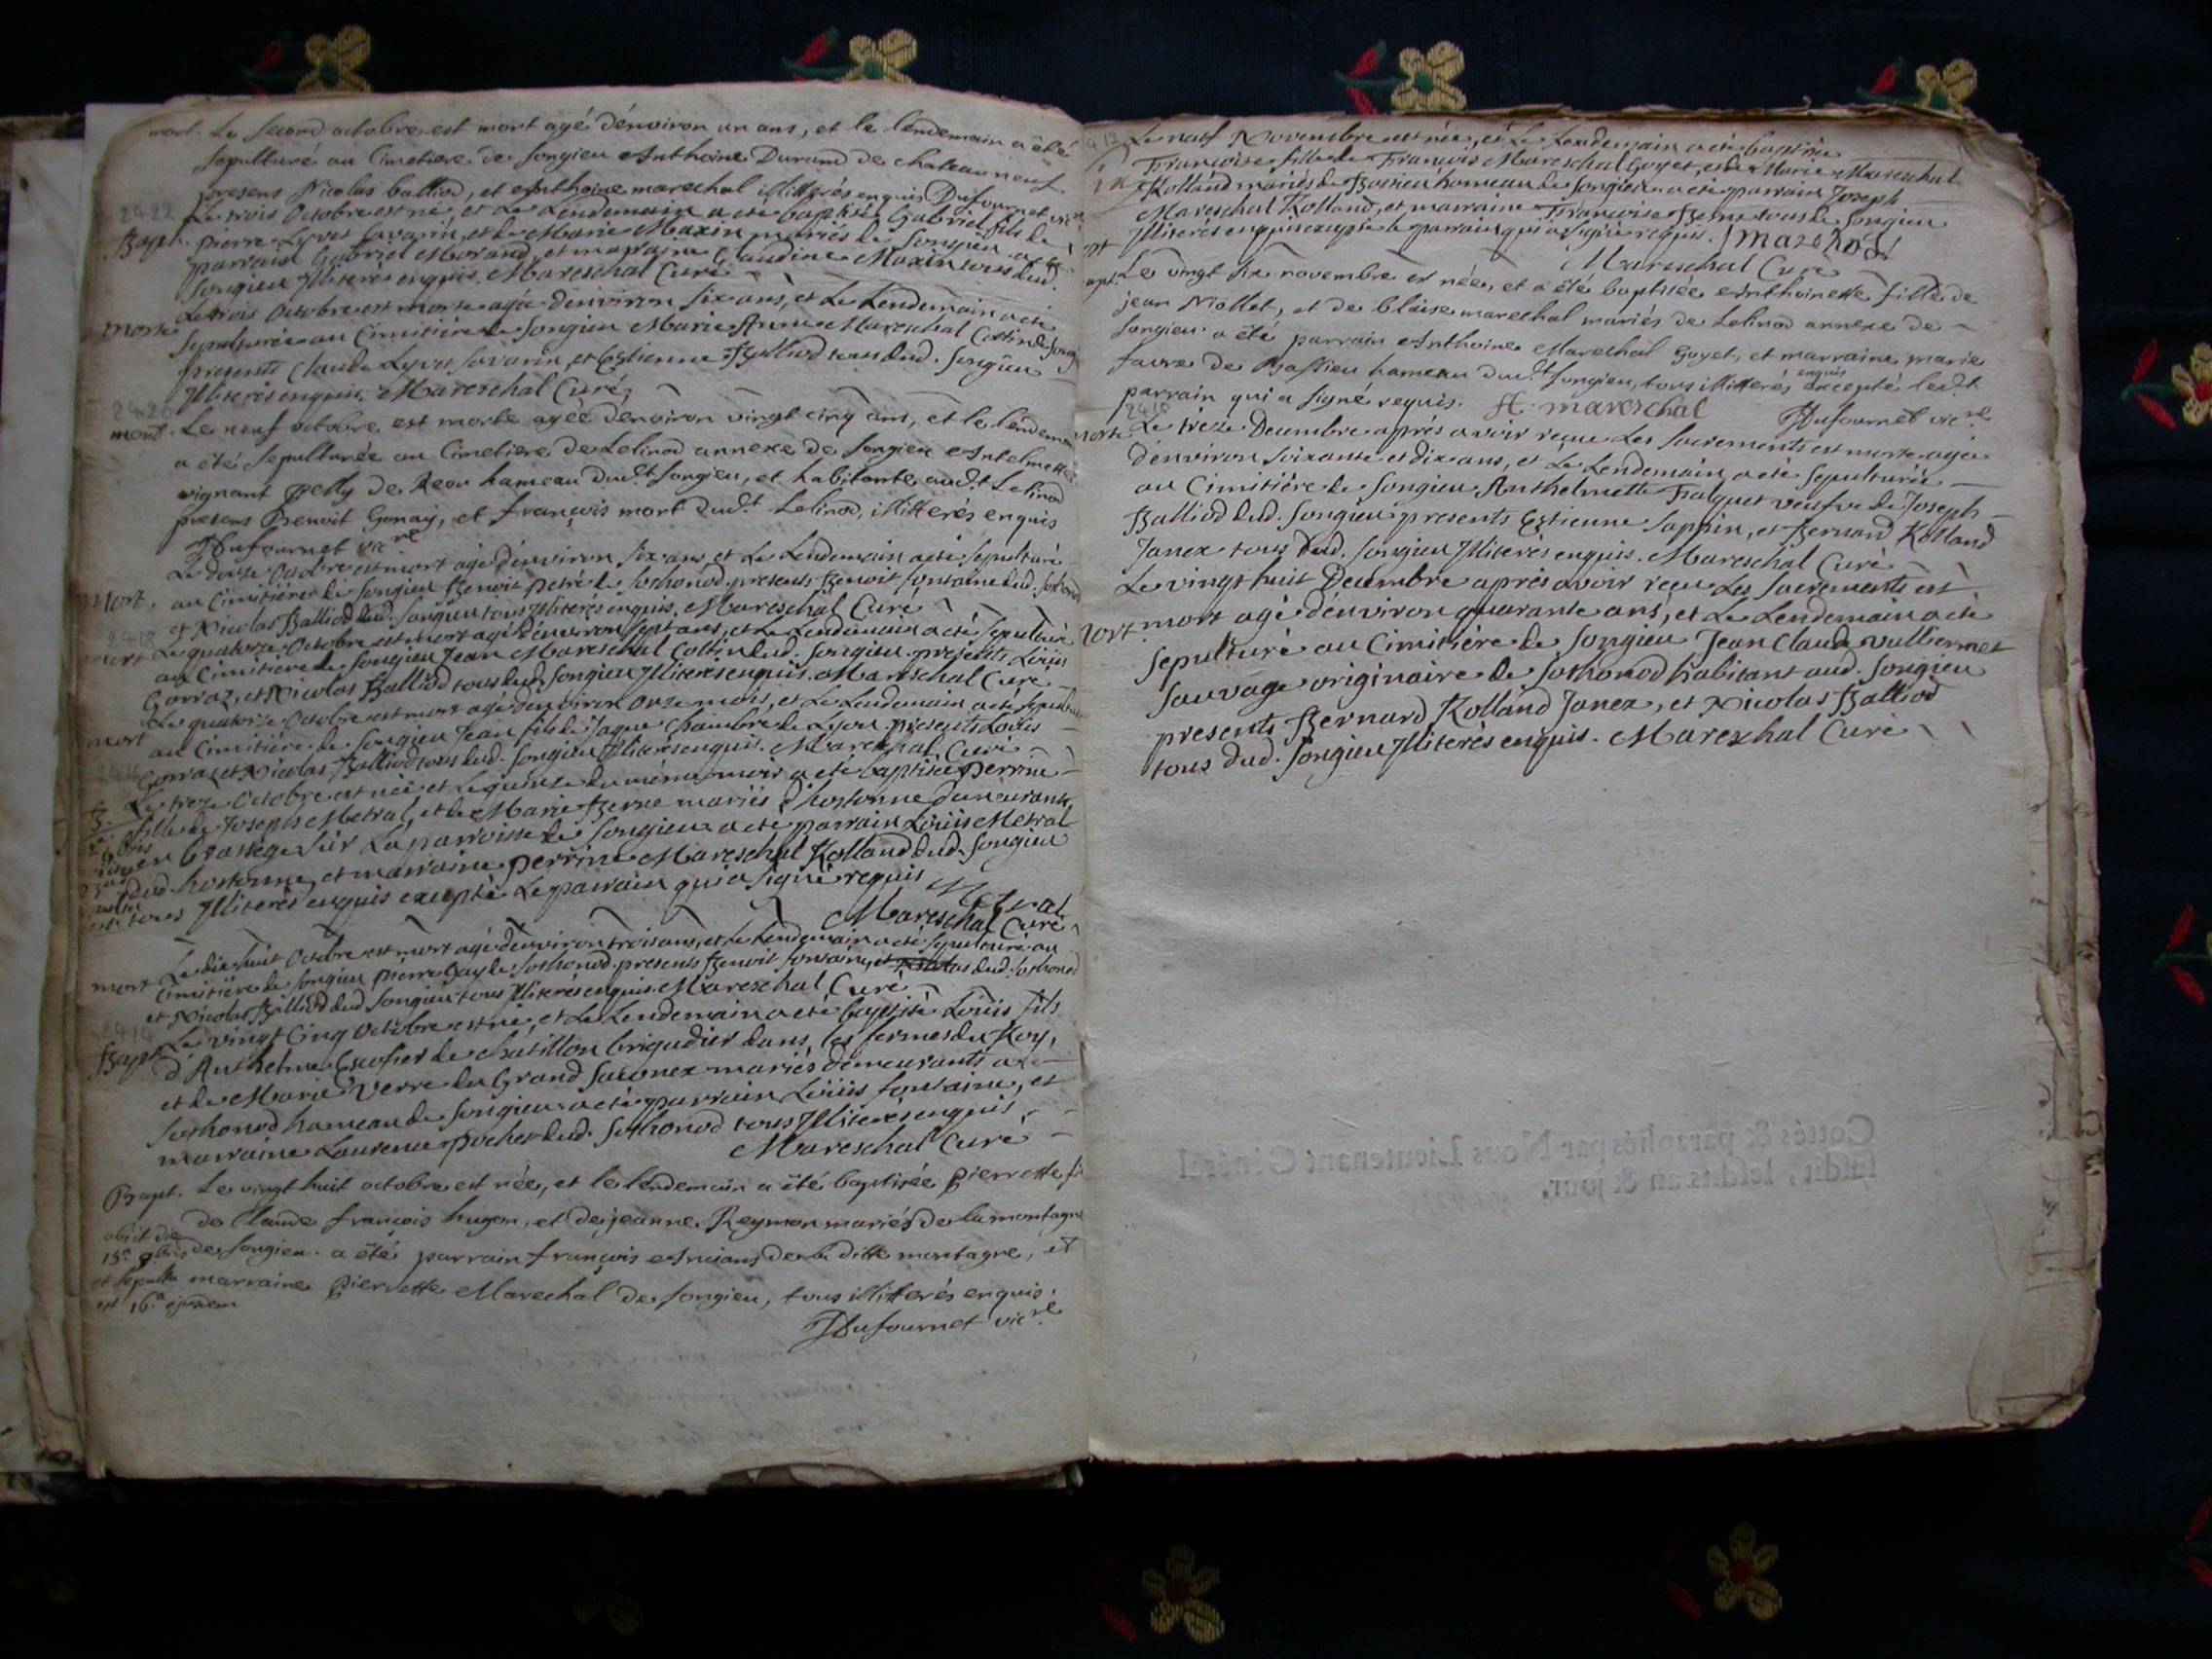 mort. Le second octobre est mort agé d'environ un ans, et le lendemain a été
sepulturé au Cimetiere de Songieu Anthoine Durand de chateauneuf
presens Nicolas balliod, et Anthoine marechal illitterés enquis Dufournet
2422
Bapt. Le trois Octobre est né, et Le Lendemain a eté baptisé Gabriel fils de
pierre Lyvet Savarin, et de Marie Maxin mariés de Songieu a eté
parrain Gabriel Morand, et marraine Claudine Maxin tous dud.
Songieu Illiterés enquis. Mareschal Curé
morte Le trois Octobre est morte agée d'environ six ans, et Le Lendemain a eté
sepulturée au Cimitière de Songieu Marie Anne Mareschal Collin de
presents Claude Lyvet Savarin, et Estienne Balliod tous dud. Songieu
Illiterés enquis. Mareschal Curé
2420
mort. Le neuf octobre est morte agée denviron vingt cinq ans, et le lendemain
a été sepulturée au Cimetiere de Lelinod annexe de Songieu Antelmette
vignant pelly de Reou hameau dud.t Songieu, et habitante aud.t Lelinod
presens Benoit Gonay, et françois mort dud.t Lelinod, illitterés enquis
Dufournet vic.re
Mort. Le douze Octobre est mort agé d'environ six ans, et Le Lendemain a eté sepulturé
au Cimitière de Songieu Benoit petre de Sothonod. presents Benoit fontaine dud. Sothonod
et Nicolas Balliod dud. Songieu tous Illiterés enquis. Mareschal Curé
2418
mort Le quatorze Octobre est mort agé d'environ sept ans, et Le Lendemain a eté sepulturé
au Cimitière de Songieu Jean Mareschal Collin dud. Songieu. presents Loüis
Gorraz, et Nicolas Balliod tous dud. Songieu Illiterés enquis. Mareschal Curé
mort Le quatorze Octobre est mort agé d'environ onze mois, et Le Lendemain a eté sepulturé
au Cimitière de Songieu Jean fils de Jaque Chambre de presents Loüis
Gorraz et Nicolas Balliod tous dud. Songieu Illiterés enquis. Mareschal Curé
B. Le treze Octobre est née et Le quinze du même mois a eté baptisée perrine
fille de Joseph Metral, et de Marie Berne mariés d'hostonne demeurants
en Grassege sur La parroisse de Songieu a eté parrain Loüis Metral
dud. hostonne, et marraine perrine Mareschal Rolland dud. Songieu
tous Illiterés enquis excepté Le parrain qui a signé requis Metral
Mareschal Curé
mort Le dix huit Octobre est mort agé d'environ trois ans, et Le Lendemain a eté sepulturé au
Cimitière de Songieu pierre Gay de Sothonod. presents Benoit fontaine, dud. Sothonod
et Nicolas Balliod dud Songieu tous Illiterés enquis. Mareschal Curé
Bapt. Le vingt Cinq Octobre est né, et Le Lendemain a eté baptisé Loüis fils
d'Anthelme Escofier de chatillon brigadier dans les fermes du Roy,
et de Marie Verre du Grand Saconex mariés demeurants a
Sothonod hameau de Songieu a eté parrain Loüis fontaine, et
marraine Laurence pochet dud. Sothonod tous Illiterés enquis
Mareschal Curé
Bapt. Le vingt huit octobre est née, et le lendemain a été baptisée Pierrette
de Claude françois hugon, et de jeanne Reymon mariés de la montagne
obiit die
15.a 9.bris de Songieu. a été parrain françois de la ditte montagne, et
et sepulta marraine Pierrette Marechal de Songieu, tous illitterés enquis.
est 16.a ejusdem
Dufournet vic.re
Le neuf Novembre est née, et Le Lendemain a eté baptisée
Françoise fille de François Mareschal Goyet, et de Marie Mareschal
Rolland mariés de Bassieu hameau de Songieu a eté parrain Joseph
Mareschal Rolland, et marraine Françoise Berne tous de Songieu
Illiterés enquis excepté le parrain qui a signé requis.
Mareschal Curé
Le vingt six novembre est née, et a été baptisée Anthoinette fille de
jean Niollet, et de blaise marechal mariés de Lelinod annexe de
Songieu a été parrain Anthoine Marechal Goyet, et marraine marie
favre de Bassieu hameau dud.t Songieu, tous illitterés enquis excepté led.t
parrain qui a signé requis. A. mareschal Dufournet vic.re
Morte Le treze Decembre aprés avoir reçue Les sacrements est morte agée
d'environ soixante et dix ans, et Le Lendemain a eté sepulturée
au Cimitière de Songieu Anthelmette Falquet veufve de Joseph
Balliod dud. Songieu presents Estienne Sappin, et Bernard Rolland
Janex tous dud. Songieu Illiterés enquis. Mareschal Curé
Le vingt huit Decembre aprés avoir reçu Les sacrements est
Mort mort agé d'environ quarante ans, et Le Lendemain a eté
sepulturé au Cimitière de Songieu Jean Claude vulliermet
Sauvage originaire de Sothonod habitant aud. Songieu
presents Bernard Rolland Janex, et Nicolas Balliod
tous dud. Songieu Illiterés enquis. Mareschal Curé
Cottés & paraphés par Nous Lieutenant Général
susdit, lesdits an & jour.